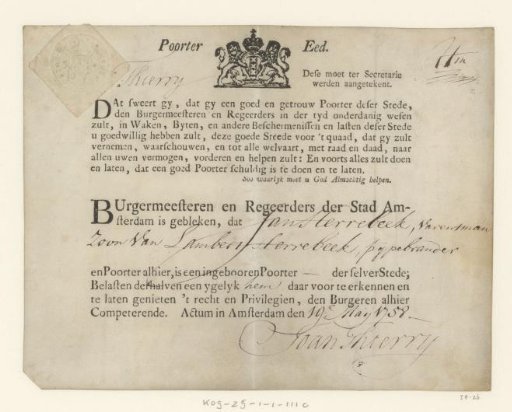 Poorter Eed.
Thierry
Dese moet ter Secretarie
werden aangetekent.
DAt sweert gy, dat gy een goed en getrouw Poorter deser Stede,
den Burgermeesteren en Regeerders in der tyd onderdanig wesen
zult, in Waken, Byten, en andere Beschermenissen en lasten deser Stede
u goedwillig hebben zult, deze goede Steede voor 't quaad, dat gy zult
vernemen, waarschouwen, en tot alle welvaart, met raad en daad, naar
allen uwen vermogen, vorderen en helpen zult: En voorts alles zult doen
en laten, dat een goed Poorter schuldig is te doen en te laten.
Soo waarlyk moet u God Almachtig helpen.
BUrgermeesteren en Regeerders der Stad Am-
sterdam is gebleken, dat Jan Herrebeek, Varentman
Zoon Van Lambert Herrebeek, pypebrander
en Poorter alhier, is een ingebooren Poorter — der selver Stede;
Belasten derhalven een ygelyk hem daar voor te erkennen en
te laten genieten 't recht en Privilegien, den Burgeren alhier
Competerende. Actum in Amsterdam den 19e May 1758.
Joan Thierry
KOG-ZG-1-1-111c